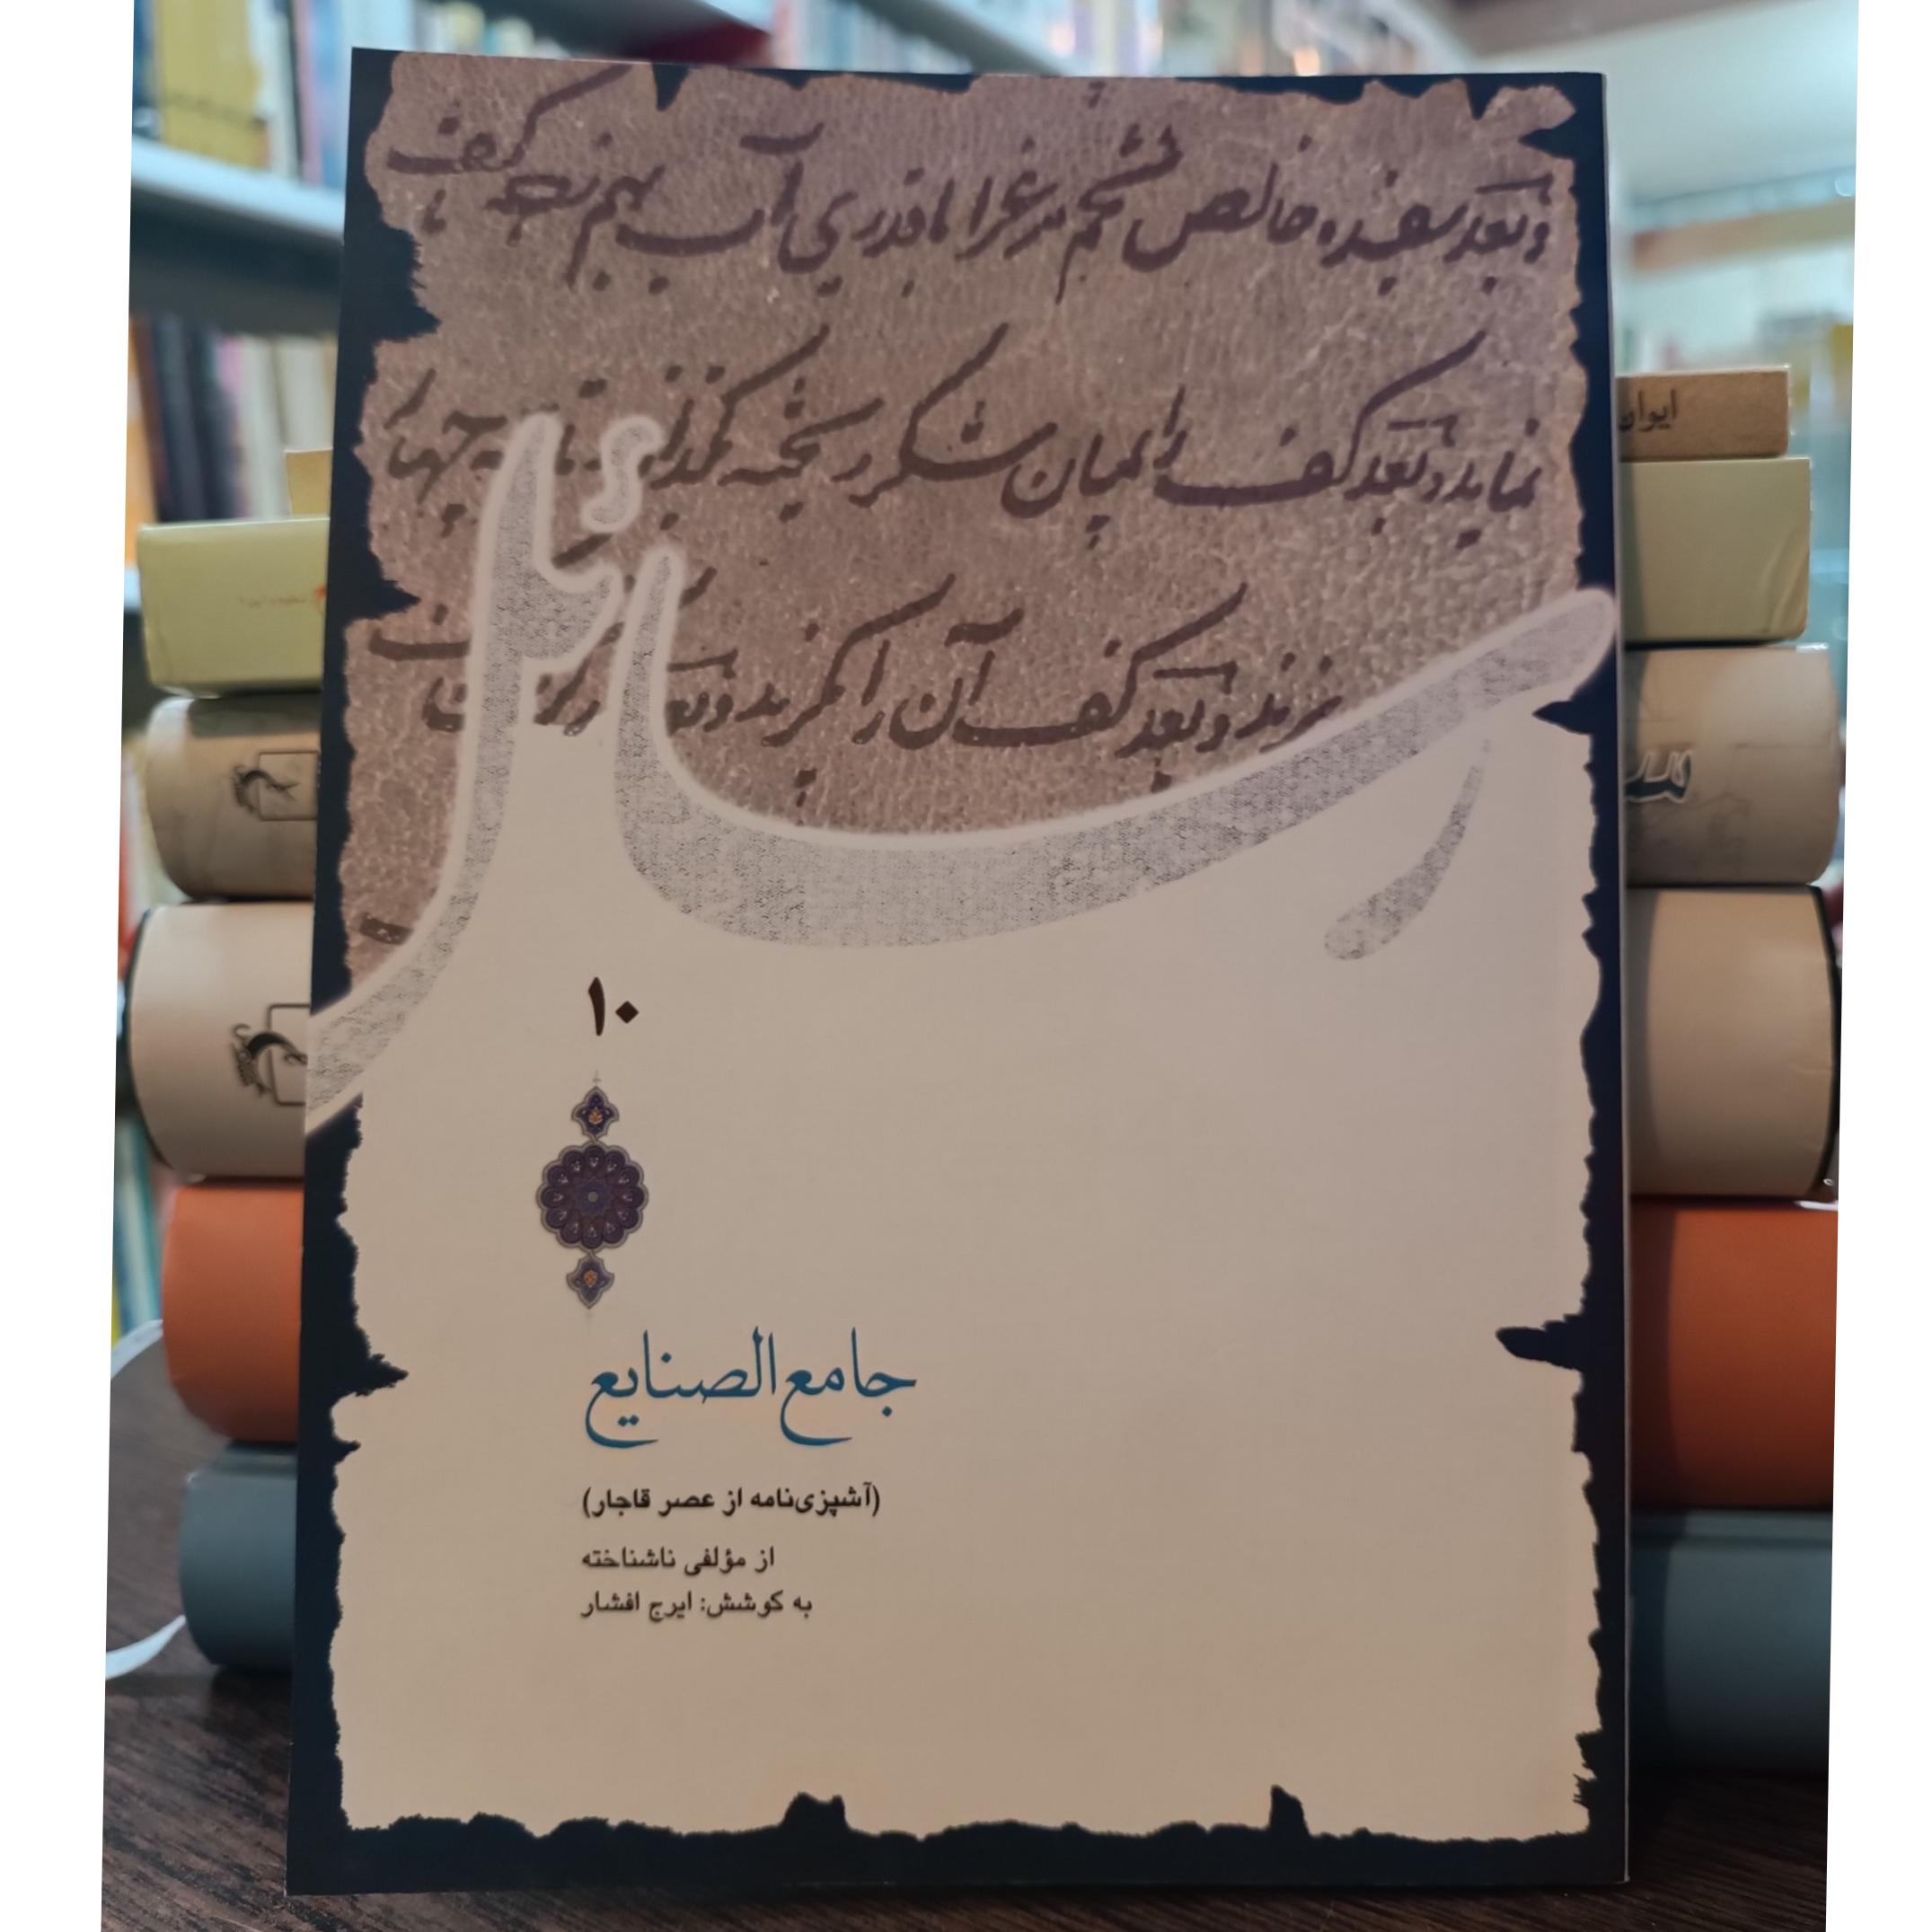 و بعد سفیده خالص تخم مرغ را با قدری آب بهم کف
نماید و بعد کف را بمیان شکر ریخته چهار
بزند و بعد کف آن را بگیرد و بعد
رسائل
۱۰
جامع الصنایع
(آشپزی‌نامه از عصر قاجار)
از مؤلفی ناشناخته
به کوشش: ایرج افشار
ایوان